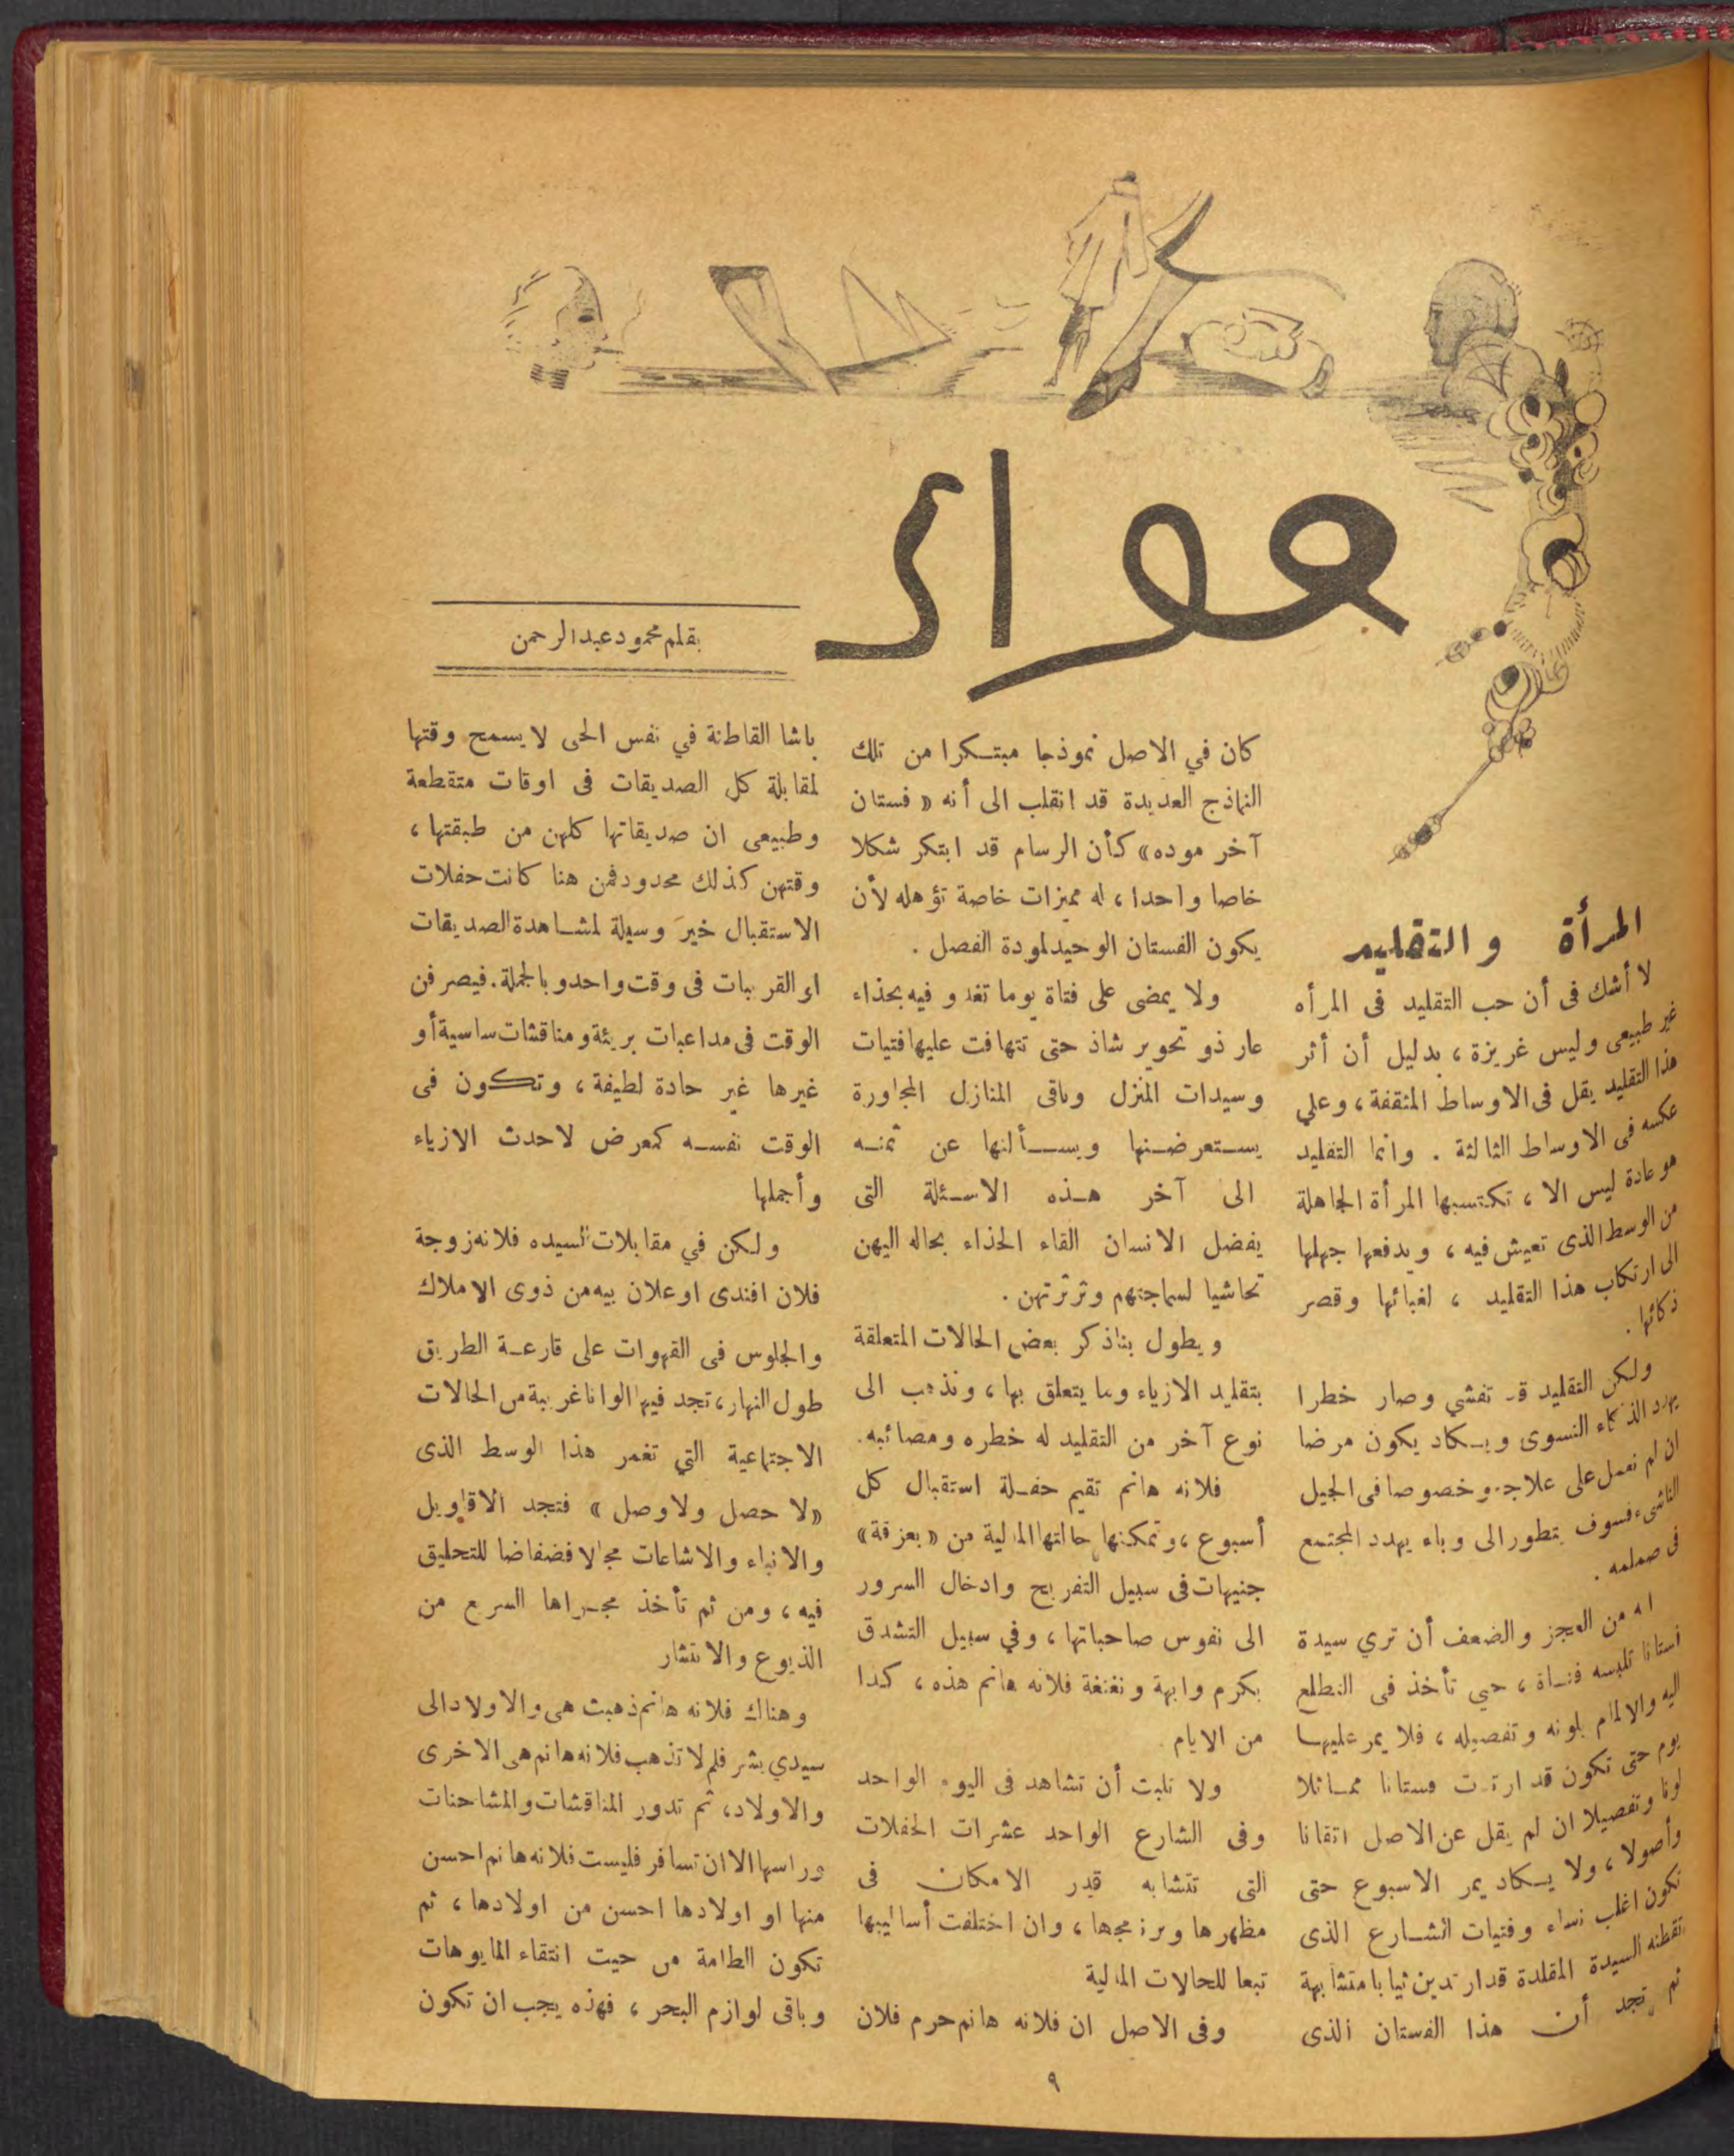 حواء
بقلم محمود عبد الرحمن
المرأة والتقليد
لا أشك فى أن حب التقليد فى المرأه
غير طبيعى وليس غريزة ، بدليل أن أثر
هذا التقليد يقل فى الاوساط المثقفة ، وعلي
عكسه فى الاوساط الثالثة . وانما التقليد
هو عادة ليس الا ، تكتسبها المرأة الجاهلة
من الوسط الذى تعيش فيه ، ويدفعها جهلها
الى ارتكاب هذا التقليد ، لغبائها وقصر
ذكائها .
ولكن التقليد قد تفشي وصار خطرا
يهدد الذكاء النسوى ويكاد يكون مرضا
ان لم نعمل على علاجه وخصوصا فى الجيل
الناشىء فسوف يتطور الى وباء يهدد المجتمع
فى صميمه .
انه من العجز والضعف أن تري سيدة
فستانا تلبسه فتاة ، حتي تأخذ فى التطلع
اليه والالمام بلونه وتفصيله ، فلا يمر عليها
يوم حتى تكون قد ارتدت فستانا مماثلا
لونا وتفصيلا ان لم يقل عن الاصل اتقانا
وأصولا ، ولا يكاد يمر الاسبوع حتى
تكون اغلب نساء وفتيات الشارع الذى
تقطنه السيدة المقلدة قد ارتدين ثيابا متشابهة
ثم تجد أن هذا الفستان الذى
كان في الاصل نموذجا مبتكرا من تلك
النماذج العديدة قد انقلب الى أنه « فستان
آخر موده» كأن الرسام قد ابتكر شكلا
خاصا واحدا ، له مميزات خاصة تؤهله لأن
يكون الفستان الوحيد لمودة الفصل .
ولا يمضى على فتاة يوما تغدو فيه بحذاء
عار ذو تحوير شاذ حتى تتهافت عليها فتيات
وسيدات المنزل وباقى المنازل المجاورة
يستعرضنها ويسألنها عن ثمنه
الى آخر هذه الاسئلة التى
يفضل الانسان القاء الحذاء بحاله اليهن
تحاشيا لسماجتهم وثرثرتهن .
ويطول بنا ذكر بعض الحالات المتعلقة
بتقليد الازياء وما يتعلق بها ، ونذهب الى
نوع آخر من التقليد له خطره ومصائبه .
فلانه هانم تقيم حفلة استقبال كل
أسبوع ، وتمكنها حالتها المالية من «بعزقة»
جنيهات فى سبيل التفريح وادخال السرور
الى نفوس صاحباتها ، وفي سبيل التشدق
بكرم وابهة ونغنغة فلانه هانم هذه ، كذا
من الايام
ولا تلبت أن تشاهد فى اليوم الواحد
وفى الشارع الواحد عشرات الحفلات
التى تتشابه قدر الامكان فى
مظهرها وبرنامجها ، وان اختلفت أساليبها
تبعا للحالات المالية
وفى الاصل ان فلانه هانم حرم فلان
باشا القاطنة في نفس الحى لا يسمح وقتها
لمقابلة كل الصديقات فى اوقات متقطعة
وطبيعى ان صديقاتها كلهن من طبقتها ،
وقتهن كذلك محدود فمن هنا كانت حفلات
الاستقبال خير وسيلة لمشاهدة الصديقات
او القريبات فى وقت واحد وبالجملة . فيصرفن
الوقت فى مداعبات بريئة ومناقشات ساسية أو
غيرها غير حادة لطيفة ، وتكون فى
الوقت نفسه كمعرض لاحدث الازياء
وأجملها
ولكن في مقابلات السيده فلانه زوجة
فلان افندى او علان بيه من ذوى الاملاك
والجلوس فى القهوات على قارعة الطريق
طول النهار ، تجد فيها الوانا غريبة من الحالات
الاجتماعية التي تغمر هذا الوسط الذى
«لا حصل ولا وصل» فتجد الاقاويل
والانباء والاشاعات مجالا فضفاضا للتحليق
فيه ، ومن ثم تأخذ مجراها السريع من
الذيوع والانتشار
وهناك فلانه هانم ذهبت هى والاولاد الى
سيدي بشر فلم لا تذهب فلانه هانم هى الاخرى
والاولاد ، ثم تدور المناقشات والمشاحنات
وراسها الا ان تسافر فليست فلانه هانم احسن
منها او اولادها احسن من اولادها ، ثم
تكون الطامة من حيت انتقاء المايوهات
وباقى لوازم البحر ، فهذه يجب ان تكون
٩